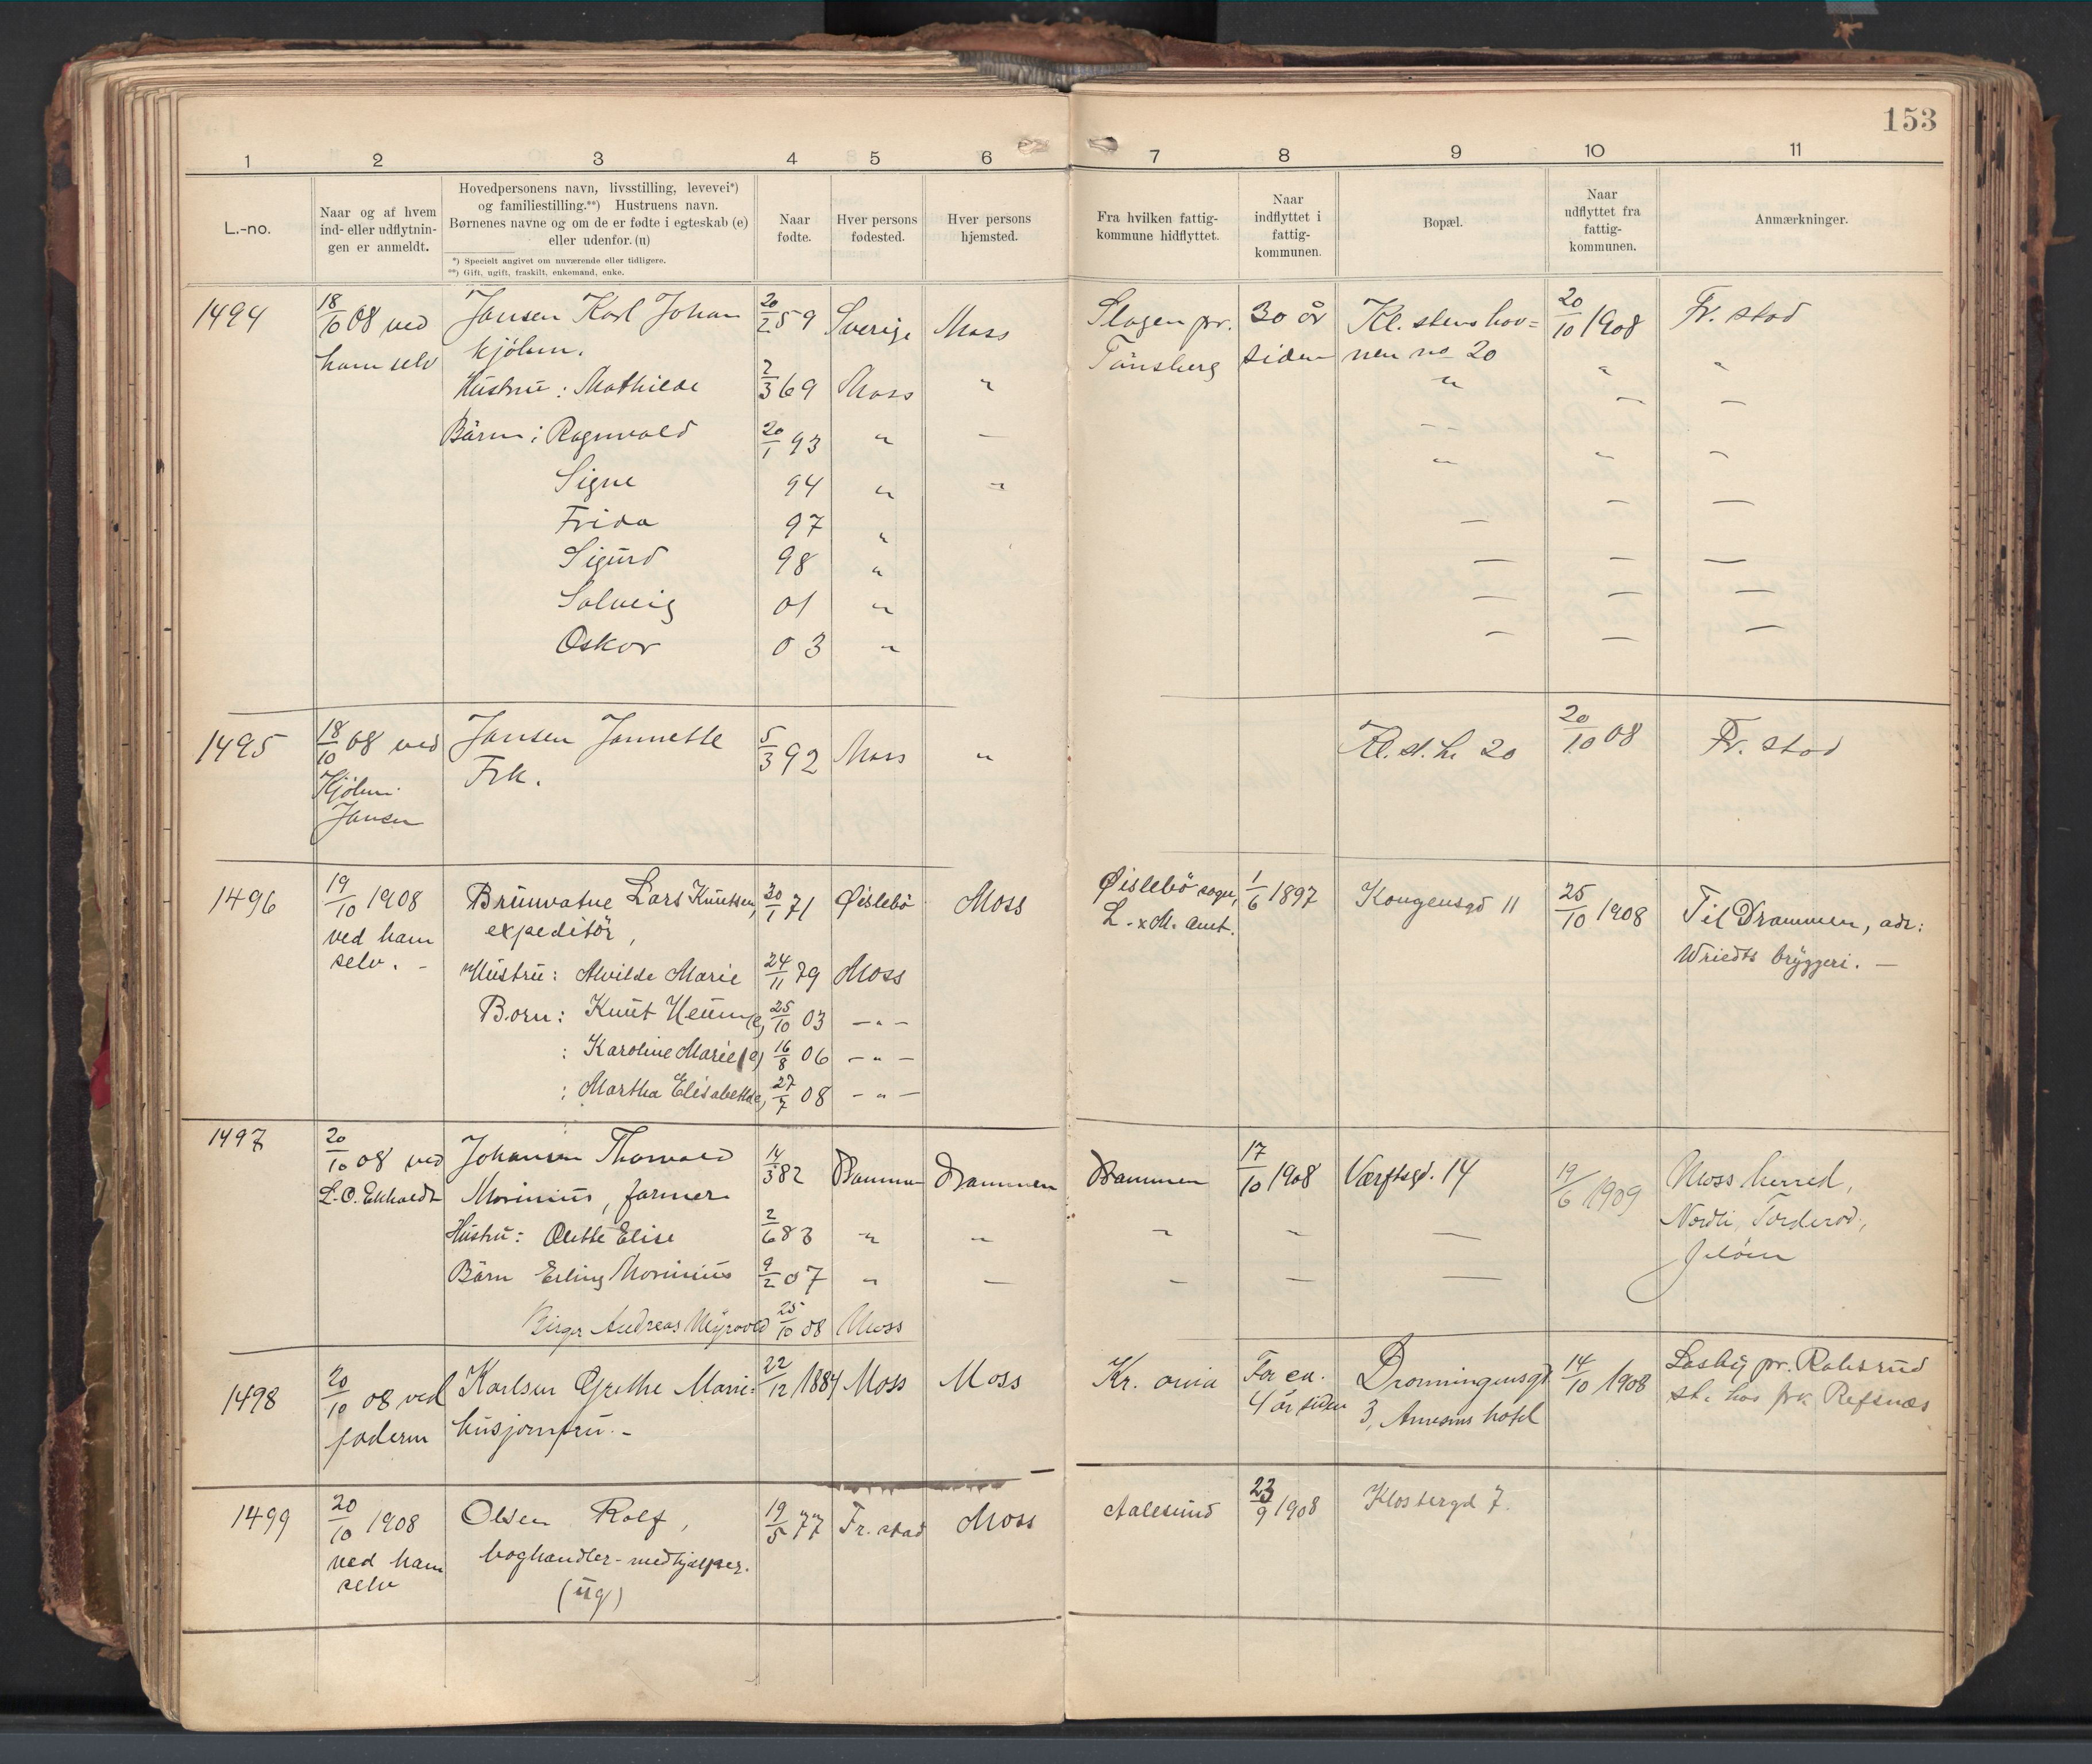 153
1 2 3 4 5 6 7 8 9 10 11
L.-no.
Naar og af hvem
ind- eller udflytnin-
gen er anmeldt.
Hovedpersonens navn, livsstilling, levevei*)
og familiestilling.**) Hustruens navn.
Børnenes navne og om de er fødte i egteskab (e)
eller udenfor. (u)
*) Specielt angivet om nuværende eller tidligere.
**) Gift, ugift, fraskilt, enkemand, enke.
Naar
fødte.
Hver persons
fødested.
Hver persons
hjemsted.
Fra hvilken fattig-
kommune hidflyttet.
Naar
indflyttet i
fattig-
kommunen.
Bopæl.
Naar
udflyttet fra
fattig-
kommunen.
Anmærkninger.
1494 18/10 08 ved Jansen Karl Johan 20/2 59 Sverige Moss Slagen pr. 30 år Kl. stens hov= 20/10 1908 Fr. stad
ham selv kjølm. Tønsberg siden nen no 20
Hustru: Mathilde 2/3 69 Moss " " " "
Børn: Ragnvald 20/1 93 " — - - — —
Signe 94 " " " " "
Frida 97 " — — —
Sigurd 98 " — — —
Solveig 01 " — — —
Oskar 03 " — — —
1495 18/10 08 ved Jansen Jannette 5/3 92 Moss " Kl. st. h. 20 20/10 08 Fr. stad
Kjølm. Frk.
Jansen
1496 19/10 1908 Brunvatne Lars Knutsen, 30/1 71 Øislebø Moss Øislebø sogn, 1/6 1897 Kongensgd 11 25/10 1908 Til Drammen, adr:
ved ham expeditør, L. x M. amt. Wriedts bryggeri. —
selv. - Hustru: Alvilde Marie 24/11 79 Moss
Born: Knut (e) 25/10 03 — " —
: Karoline Marie (e) 16/8 06 — " —
: Martha Elisabeth (e) 27/7 08 — " —
1497 20/10 08 ved Johansen Thorvald 14/3 82 Drammen Drammen Drammen 17/10 1908 Værftsgd. 14 19/6 1909 Moss herred,
L. O. Ekholdt Morinius, farmer Nordli, Torderød,
Hustru: Olette Elise 2/6 83 " " " " — Jeløen
Børn Erling Morinius 9/2 07 " — — — —
Birger Andreas Myrvold 25/10 08 Moss
1498 20/10 08 ved Karlsen Grethe Marie= 22/12 1884 Moss Moss Kr. ania For ca. Dronningensgt 14/10 1908 Losby pr. Robsrud
faderen husjomfru. - 4 år siden 3, Arnesens hotel st. hos frk. Refsnæs
1499 20/10 1908 Olsen Rolf, 19/5 77 Fr. stad Moss Aalesund 23/9 1908 Klostergd 7.
ved ham boghandler-medhjælper.
selv (ug)